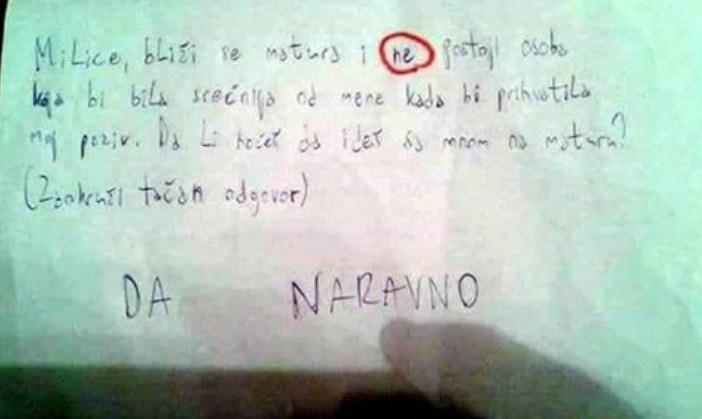 Milice, bliži se matura i ne postoji osoba
koja bi bila srećnija od mene kada bi prihvatila
moj poziv. Da li hoćeš da ideš sa mnom na maturu?
(Zaokruži tačan odgovor)
DA NARAVNO